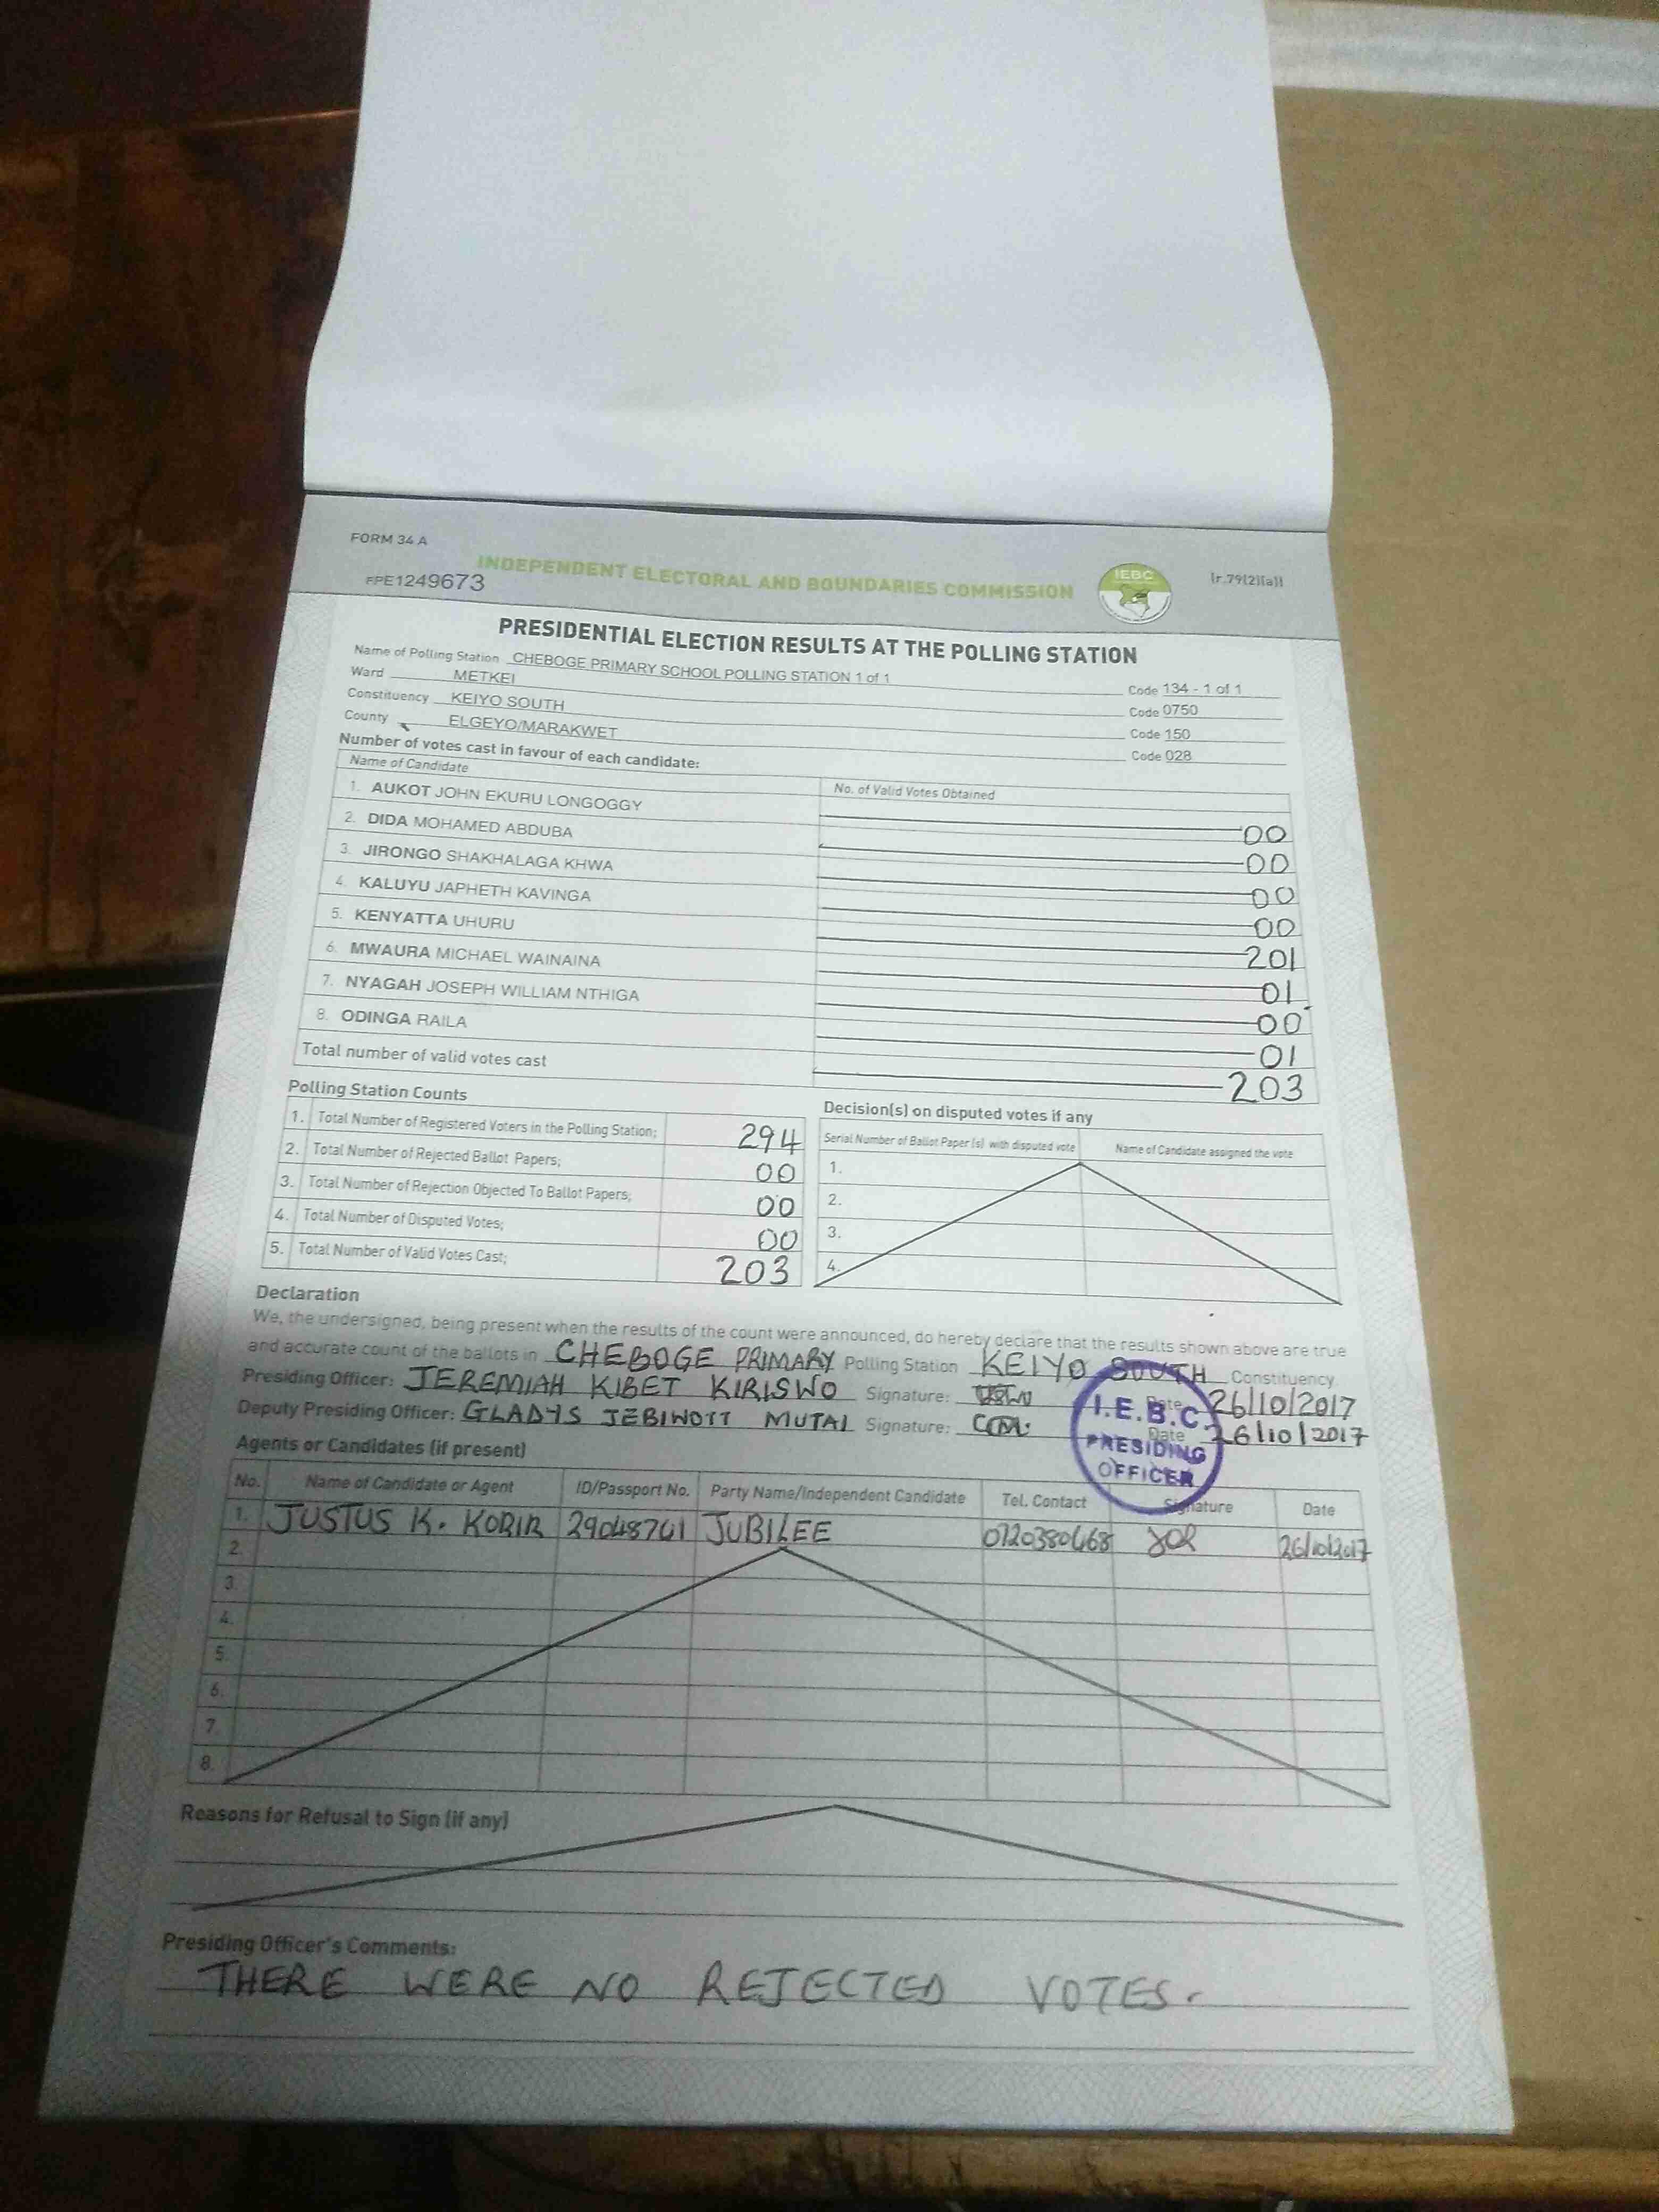 FORM 34 A
INDEPENDENT ELECTORAL AND BOUNDARIES COMMISSION
IEBC
[r.79(2)(a)]
FPE1249673
PRESIDENTIAL ELECTION RESULTS AT THE POLLING STATION
Name of Polling Station CHEBOGE PRIMARY SCHOOL POLLING STATION 1 of 1 Code 134 - 1 of 1
Ward METKEI Code 0750
Constituency KEIYO SOUTH Code 150
County ELGEYO/MARAKWET Code 028
Number of votes cast in favour of each candidate:
Name of Candidate No. of Valid Votes Obtained
1. AUKOT JOHN EKURU LONGOGGY 00
2. DIDA MOHAMED ABDUBA 00
3. JIRONGO SHAKHALAGA KHWA 00
4. KALUYU JAPHETH KAVINGA 00
5. KENYATTA UHURU 201
6. MWAURA MICHAEL WAINAINA 01
7. NYAGAH JOSEPH WILLIAM NTHIGA 00
8. ODINGA RAILA 01
Total number of valid votes cast 203
Polling Station Counts
1. Total Number of Registered Voters in the Polling Station; 294
2. Total Number of Rejected Ballot Papers; 00
3. Total Number of Rejection Objected To Ballot Papers; 00
4. Total Number of Disputed Votes; 00
5. Total Number of Valid Votes Cast; 203
Decision(s) on disputed votes if any
Serial Number of Ballot Paper (s) with disputed vote Name of Candidate assigned the vote
1.
2.
3.
4.
Declaration
We, the undersigned, being present when the results of the count were announced, do hereby declare that the results shown above are true
and accurate count of the ballots in CHEBOGE PRIMARY Polling Station KEIYO SOUTH Constituency
Presiding Officer: JEREMIAH KIBET KIRISWO Signature: Date 26/10/2017
Deputy Presiding Officer: GLADYS JEBIWOTT MUTAI Signature: Date 26/10/2017
I.E.B.C.
PRESIDING
OFFICER
Agents or Candidates (if present)
No. Name of Candidate or Agent ID/Passport No. Party Name/Independent Candidate Tel. Contact Signature Date
1. JUSTUS K. KORIR 29048741 JUBILEE 0720380468 26/10/2017
2.
3.
4.
5.
6.
7.
8.
Reasons for Refusal to Sign (if any)
Presiding Officer's Comments:
THERE WERE NO REJECTED VOTES.